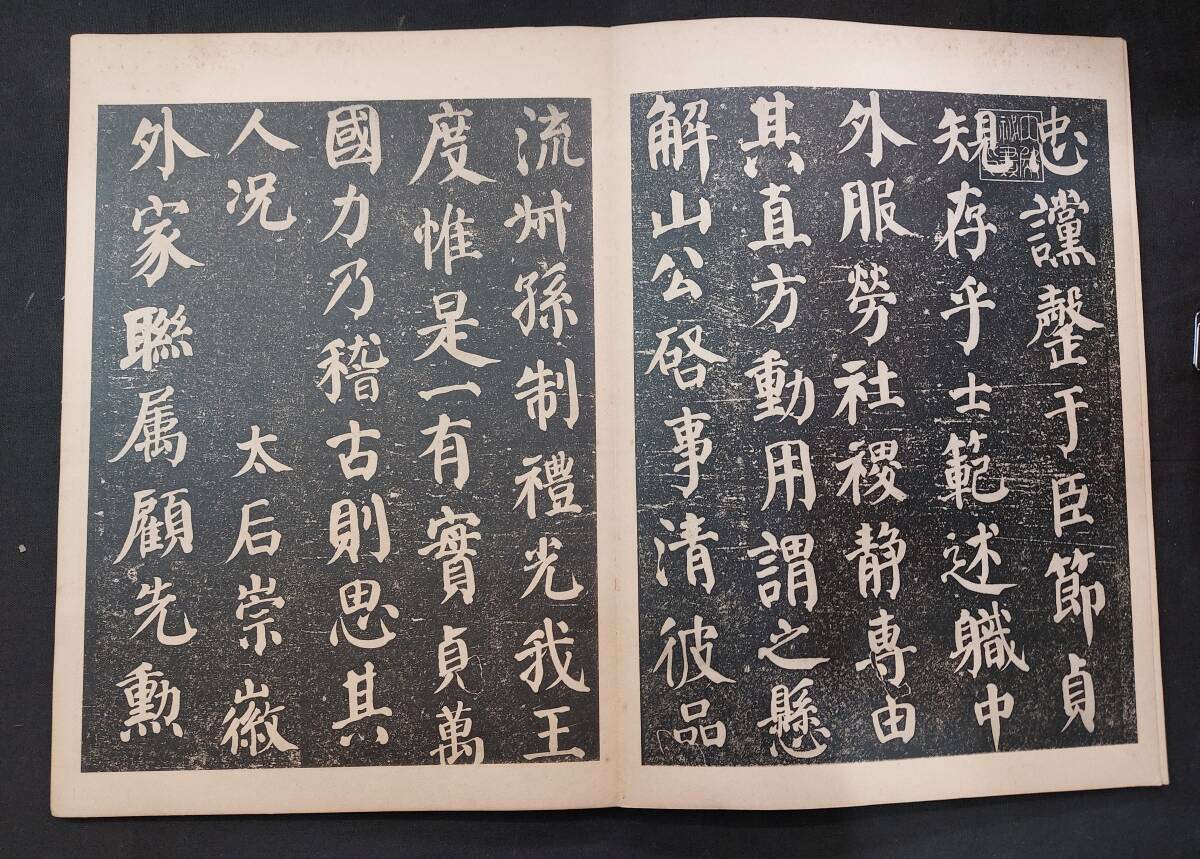 忠讜罄于臣節貞
規存乎士範述職中
外服勞社稷静專由
其直方動用謂之懸
解山公啓事清彼品
流叔孫制禮光我王
度惟是一有實貞萬
國力乃稽古則思其
人况 太后崇徽
外家聯属顧先勲